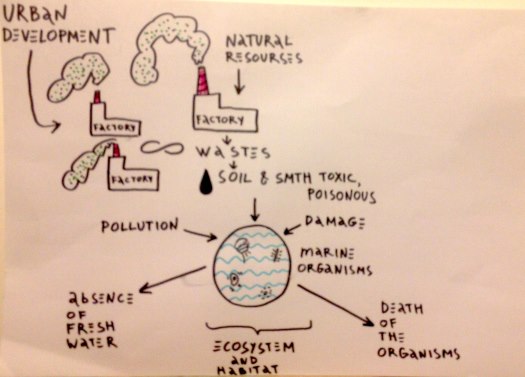 URBAN
DEVELOPMENT
NATURAL
RESOURSES
FACTORY
FACTORY
FACTORY
WASTES
SOIL & SMTH TOXIC,
POISONOUS
POLLUTION
DAMAGE
MARINE
ORGANISMS
ABSENCE
OF
FRESH
WATER
ECOSYSTEM
AND
HABITAT
DEATH
OF
THE
ORGANISMS